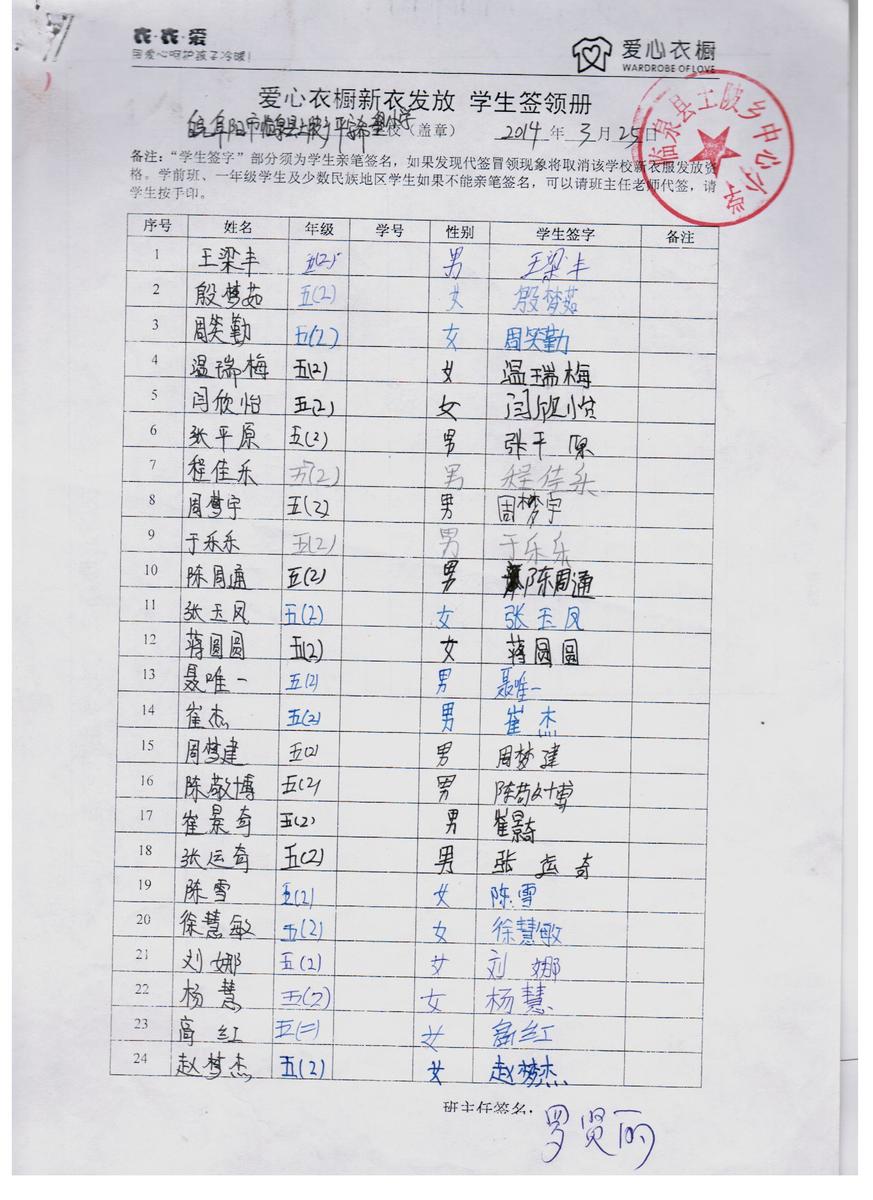 衣·衣·爱
用爱心呵护孩子冷暖!
爱心衣橱
WARDROBE OF LOVE
爱心衣橱新衣发放 学生签领册
阜阳市临泉县土陂乡 校（盖章） 2014 年 3 月 25 日
临泉县土陂乡中心小学
备注：“学生签字”部分须为学生亲笔签名，如果发现代签冒领现象将取消该学校新衣服发放资
格。学前班、一年级学生及少数民族地区学生如果不能亲笔签名，可以请班主任老师代签，请
学生按手印。
序号 姓名 年级 学号 性别 学生签字 备注
1 王梁丰 五(2) 男 王梁丰
2 殷梦茹 五(2) 女 殷梦茹
3 周笑勤 五(2) 女 周笑勤
4 温瑞梅 五(2) 女 温瑞梅
5 闫欣怡 五(2) 女 闫欣怡
6 张平原 五(2) 男 张平原
7 程佳乐 五(2) 男 程佳乐
8 周梦宇 五(2) 男 周梦宇
9 于乐乐 五(2) 男 于乐乐
10 陈周通 五(2) 男 陈周通
11 张玉凤 五(2) 女 张玉凤
12 蒋圆圆 五(2) 女 蒋圆圆
13 聂唯一 五(2) 男 聂唯一
14 崔杰 五(2) 男 崔杰
15 周梦建 五(2) 男 周梦建
16 陈敬博 五(2) 男 陈敬博
17 崔景奇 五(2) 男 崔景奇
18 张运奇 五(2) 男 张运奇
19 陈雪 五(2) 女 陈雪
20 徐慧敏 五(2) 女 徐慧敏
21 刘娜 五(2) 女 刘娜
22 杨慧 五(2) 女 杨慧
23 高红 五(二) 女 高红
24 赵梦杰 五(2) 女 赵梦杰
班主任签名：
罗贤丽